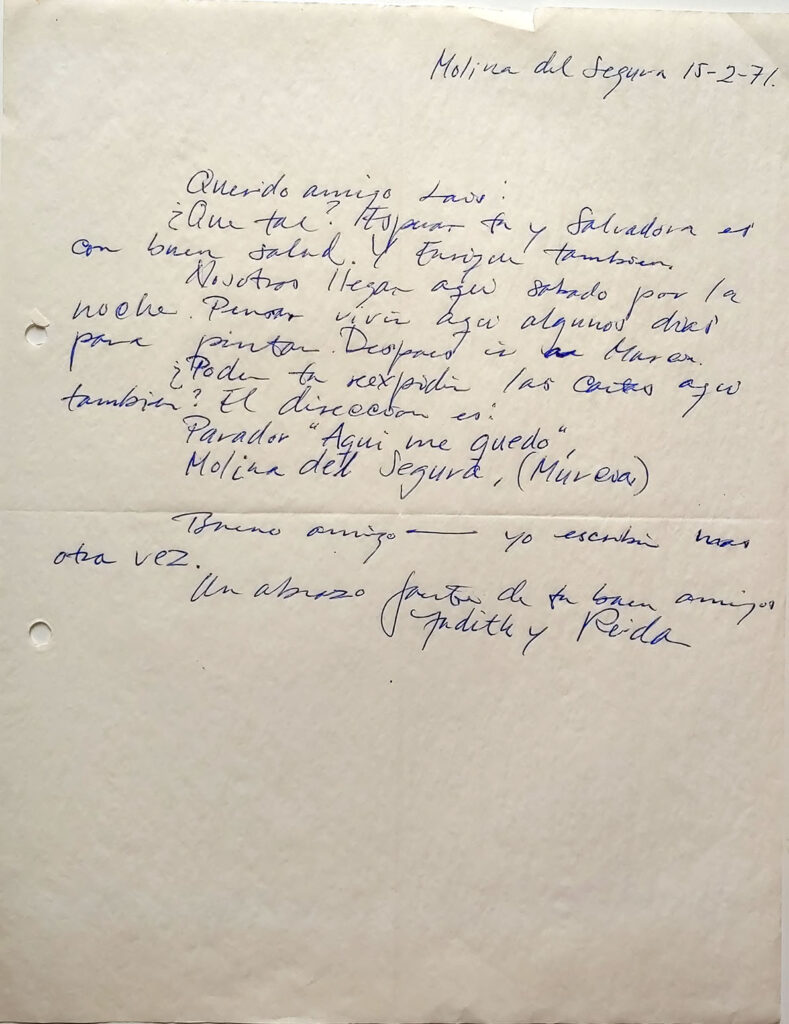 Molina del Segura 15-2-71.
Querido amigo Luis:
¿Que tal? Esperar tu y Salvadora es
con buen salud. Y Enrique tambien.
Nosotros llegar aqui sabado por la
noche. Pensar vivir aqui algunos dias
para pintar. Despues ir a Murcia.
¿Poder tu reexpidir las cartas aqui
tambien? El direccion es:
Parador "Aqui me quedo",
Molina del Segura, (Murcia)
Bueno amigo — yo escribir mas
otra vez.
Un abrazo fuerte de tu buen amigos
Judith y Reida